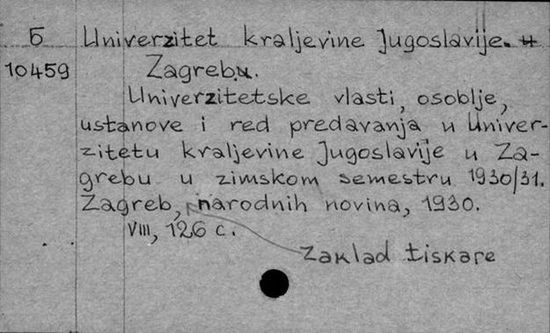 Б Univerzitet kraljevine Jugoslavije. u
10459 Zagrebu.
Univerzitetske vlasti, osoblje,
ustanove i red predavanja u Univer-
zitetu kraljevine Jugoslavije u Za-
grebu u zimskom semestru 1930/31.
Zagreb, narodnih novina, 1930.
VIII, 126 c.
Zaklad tiskare